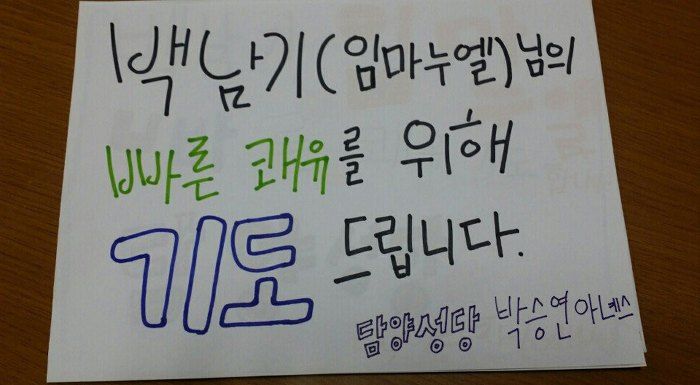 백남기(임마누엘)님의
빠른 쾌유를 위해
기도 드립니다.
담양성당 박승연아녜스